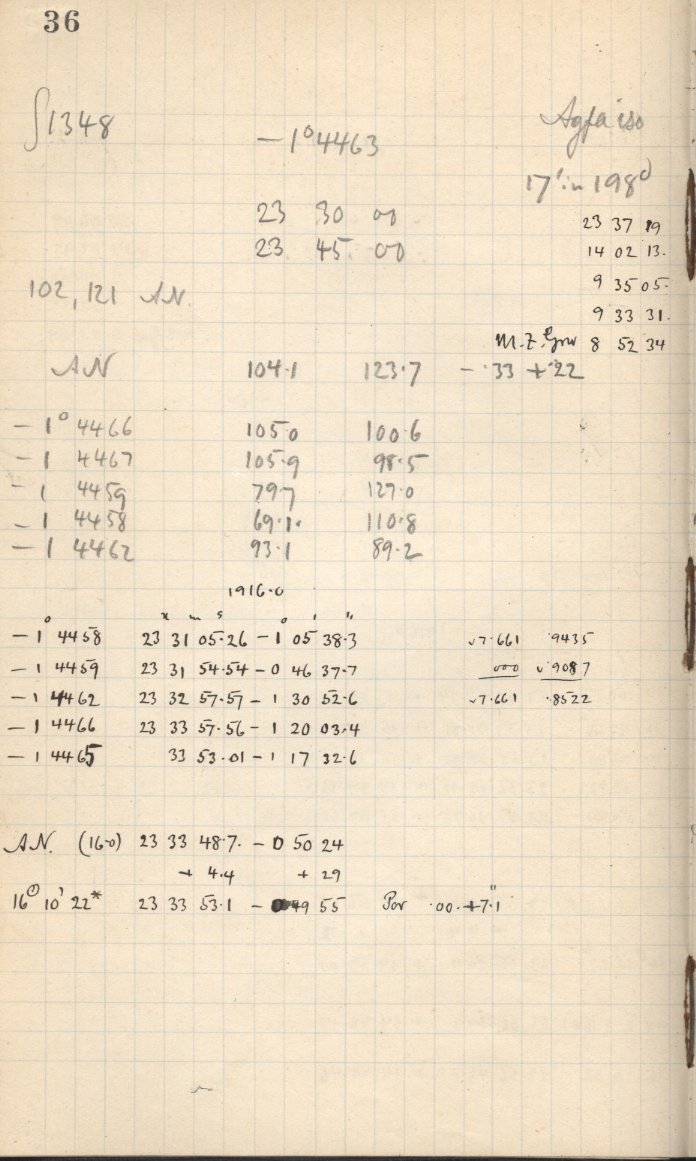 36
∫1348
-1°4463
Agfa iso
17' in 198d
23 30 00
23 45 00
23 37 19
14 02 13.
9 35 05.
9 33 31.
102, 121 AN.
M.Z. Grw 8 52 34
AN 104.1 123.7 - .33 + .22
-1° 4466 105.0 100.6
-1 4467 105.9 98.5
-1 4459 79.7 127.0
-1 4458 69.1. 110.8
-1 4462 93.1 89.2
1916.0
h m s ° ' "
-1° 4458 23 31 05.26 -1 05 38.3 7.661 .9435
-1 4459 23 31 54.54 -0 46 37.7 000 .9087
-1 4462 23 32 57.57 -1 30 52.6 7.661 .8522
-1 4466 23 33 57.56 -1 20 03.4
-1 4465 33 53.01 -1 17 32.6
AN. (16.0) 23 33 48.7. -0 50 24
+ 4.4 + 29
16 10' 22* 23 33 53.1 - 49 55 Par .00. +7.1"